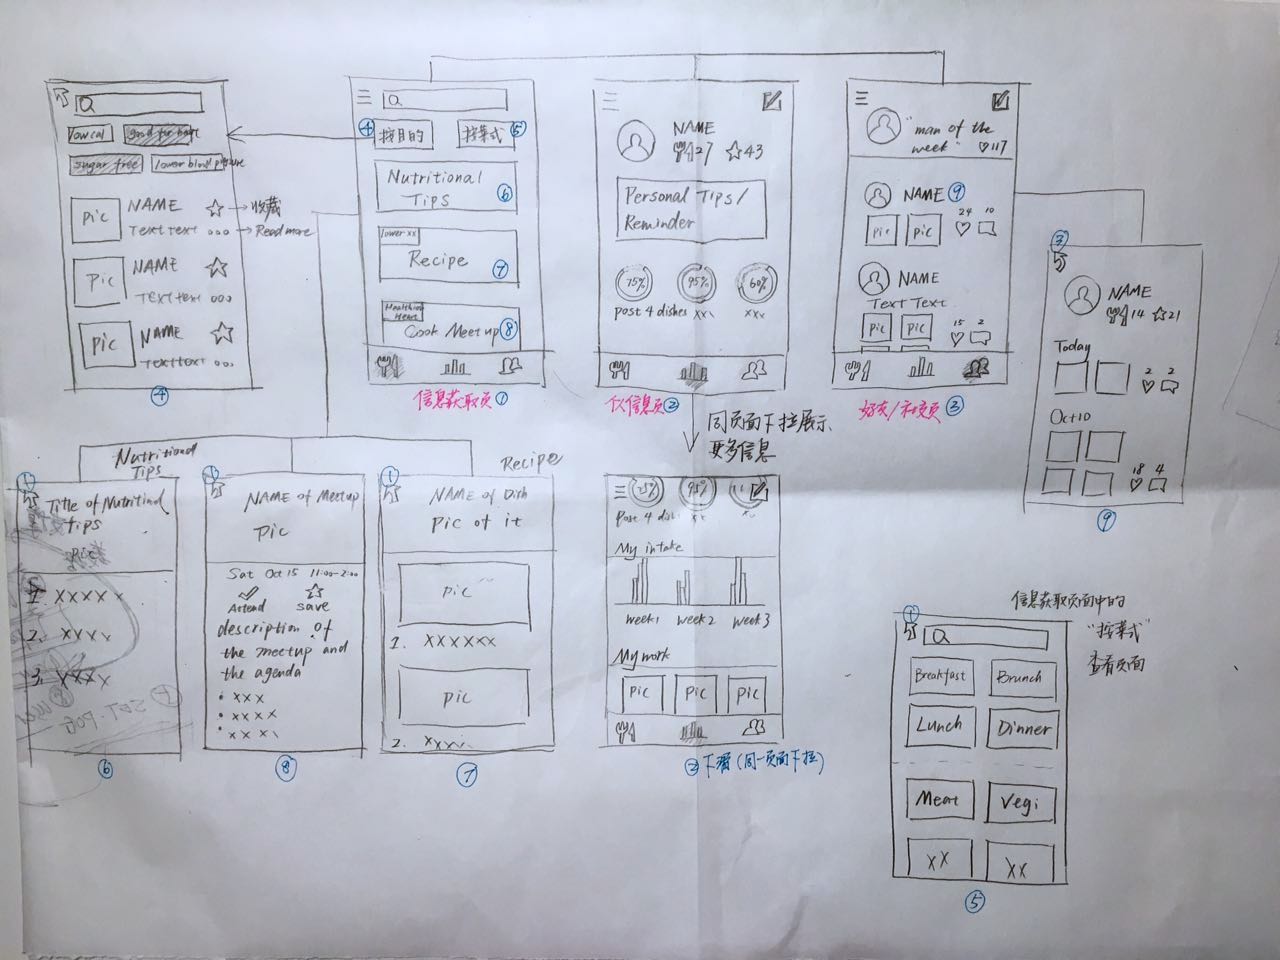 low cal
good for heart
sugar free
lower blood pressure
Pic
NAME
收藏
Text text
Read more
Pic
NAME
Text text
Pic
NAME
Text text
④
④
按目的
按菜式
⑤
Nutritional
Tips
⑥
lower xx
Recipe
⑦
Healthier
Heart
Cook Meetup
⑧
信息获取页①
NAME
27
43
Personal Tips/
Reminder
75%
95%
60%
post 4 dishes
xxx
xxx
个人信息页②
同页面下拉展示
更多信息
"man of the
week"
117
NAME
⑨
Pic
Pic
24
10
NAME
Text Text
Pic
Pic
15
2
好友/社交页③
③
NAME
14
21
Today
2
2
Oct10
18
4
⑨
Nutritional
Tips
Recipe
①
Title of Nutritional
tips
Pic
1. XXXXX
2. XXXX
3. XXXX
⑥
①
NAME of Meetup
Pic
Sat Oct 15 11:00-2:00
Attend
save
description of
the meetup and
the agenda
• XXX
• XXXX
• XX XX
⑧
①
NAME of Dish
Pic of it
Pic
1. XXXXXX
Pic
2. XXXX
⑦
75%
95%
Post 4 dishes
xx
My intake
week1
week2
week3
My work
Pic
Pic
Pic
②下滑(同一页面下拉)
①
信息获取页面中的
"按菜式"
查看页面
Breakfast
Brunch
Lunch
Dinner
Meat
Vegi
XX
XX
⑤